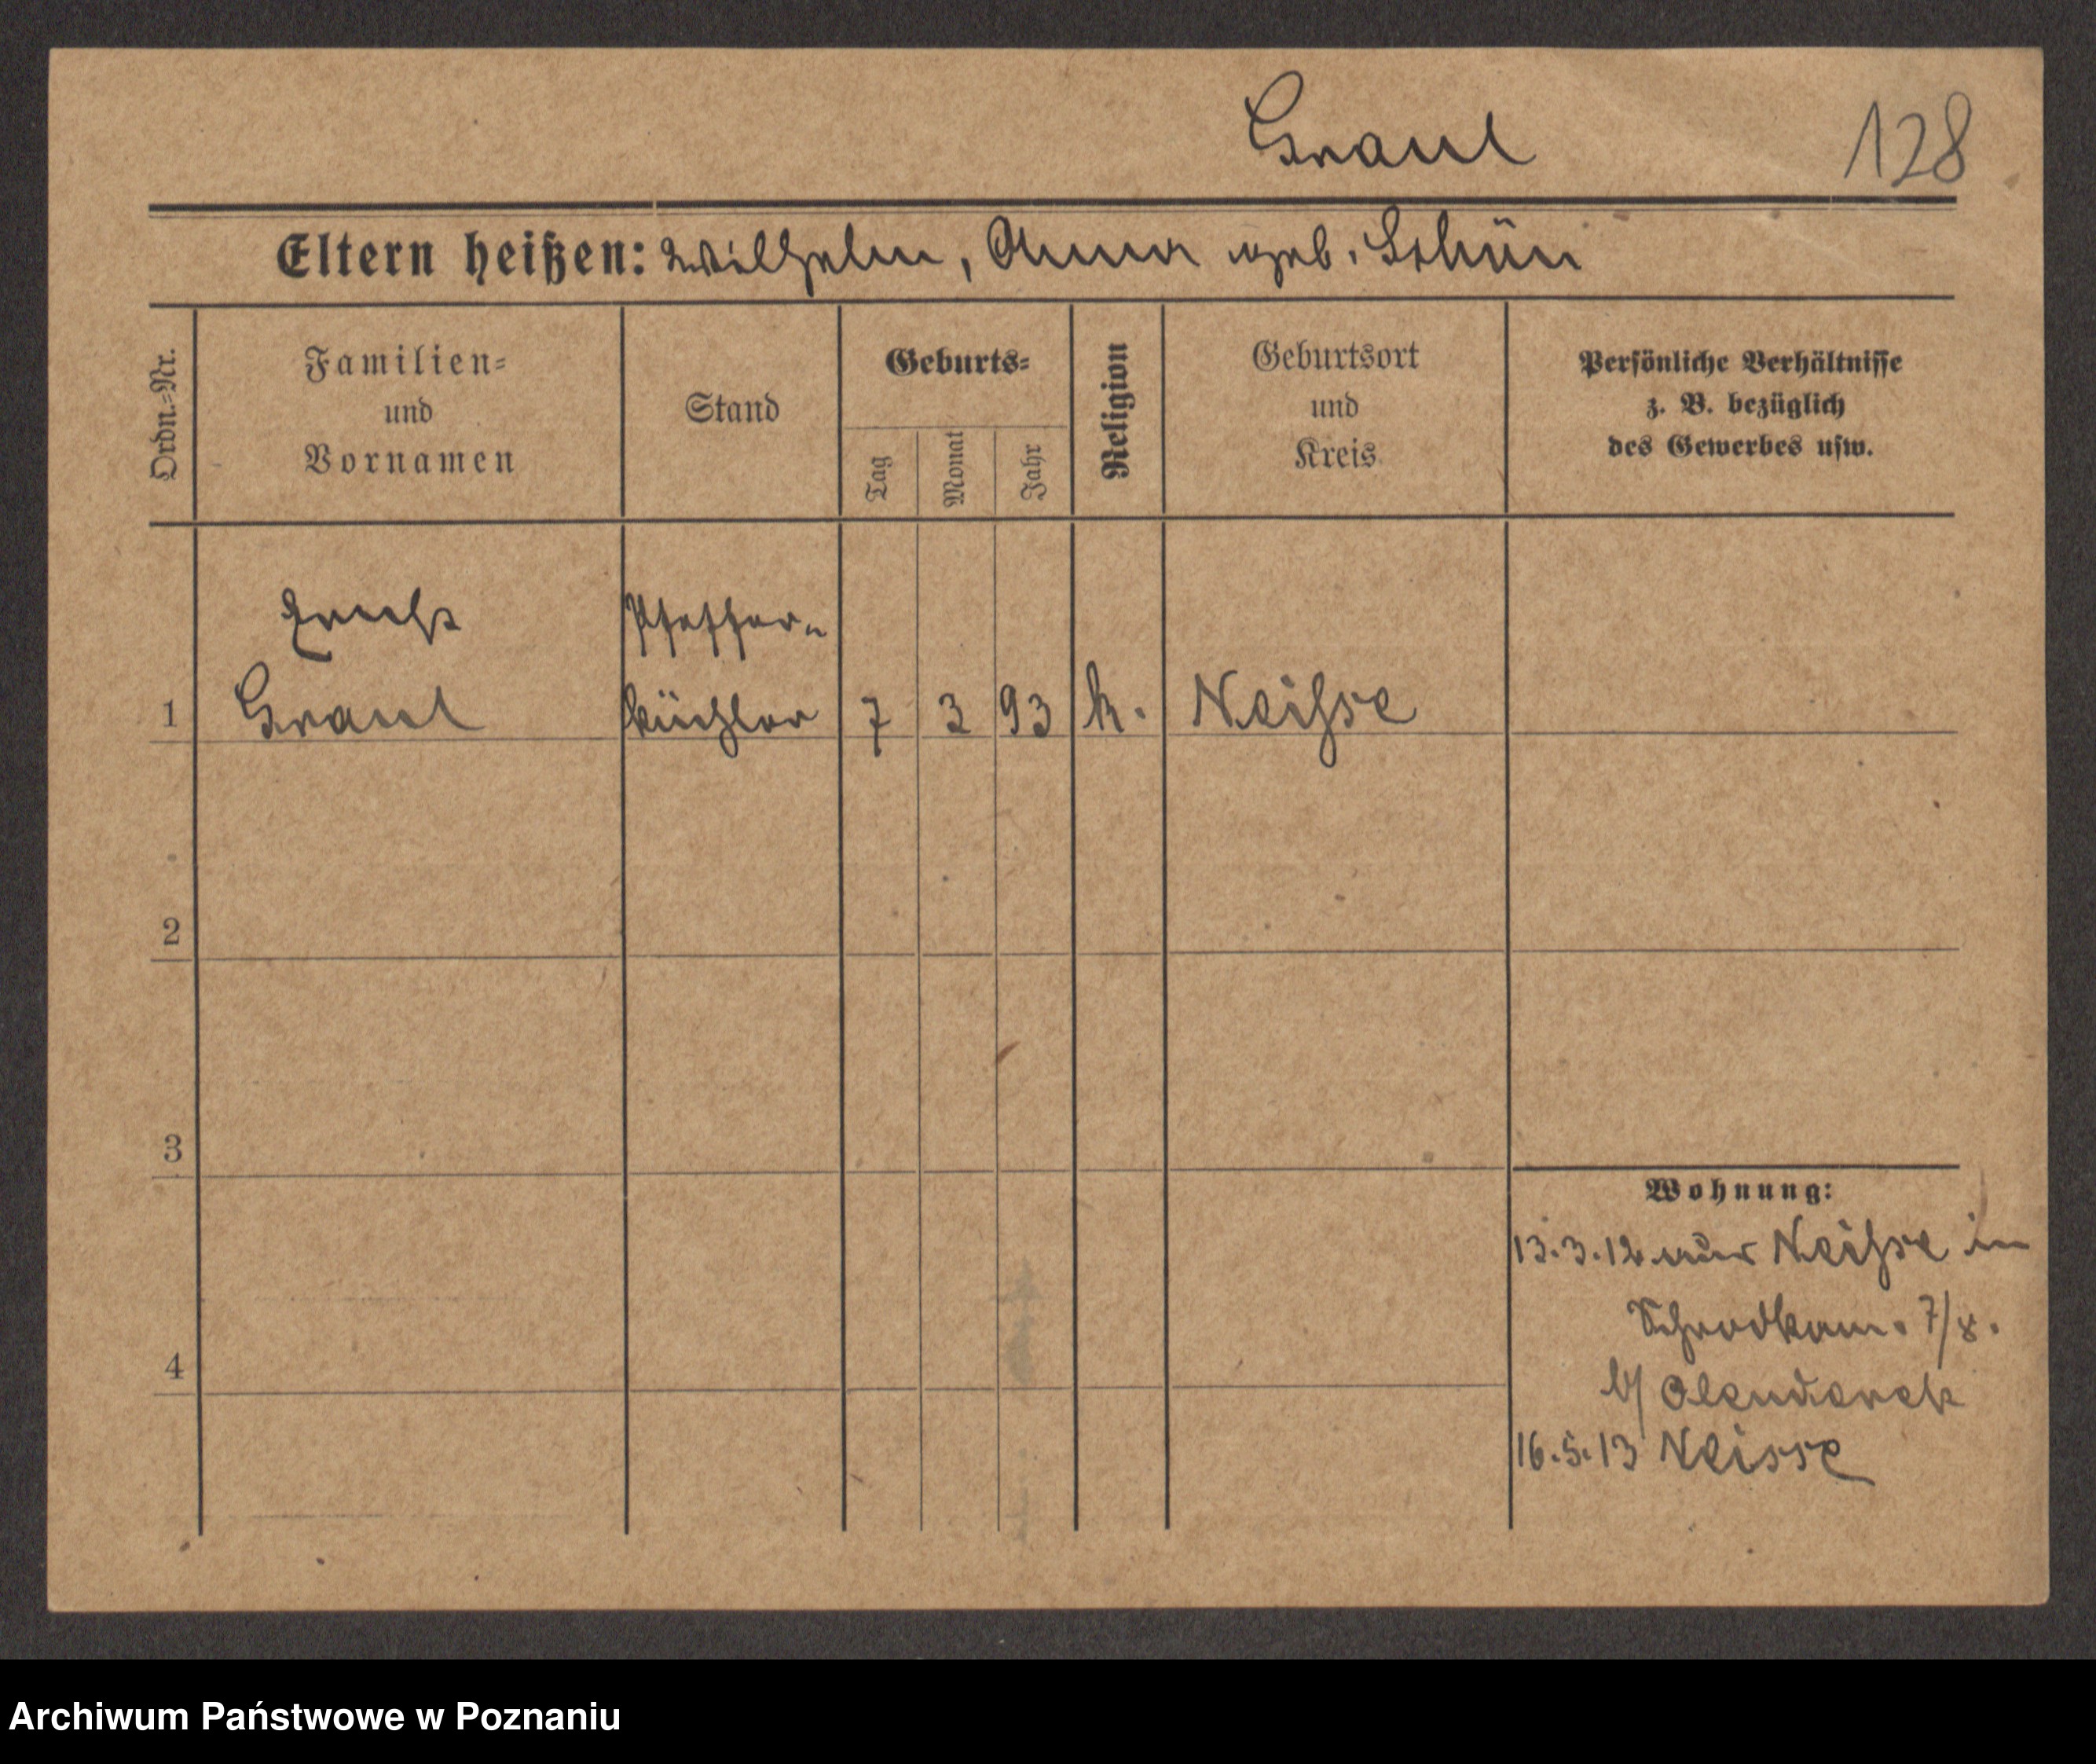 Graul
128
Eltern heißen: Wilhelm, Anna geb. Schön
Ordn.=Nr.
Familien=
und
Vornamen
Stand
Geburts=
Tag
Monat
Jahr
Religion
Geburtsort
und
Kreis
Persönliche Verhältnisse
z. B. bezüglich
des Gewerbes usw.
Ernst
Pfeffer=
1 Graul küchler 7 3 93 k. Neisse
2
3
4
Wohnung:
13.3.12 aus Neisse in
7/8.
b/
16.5.13 Neisse
Archiwum Państwowe w Poznaniu